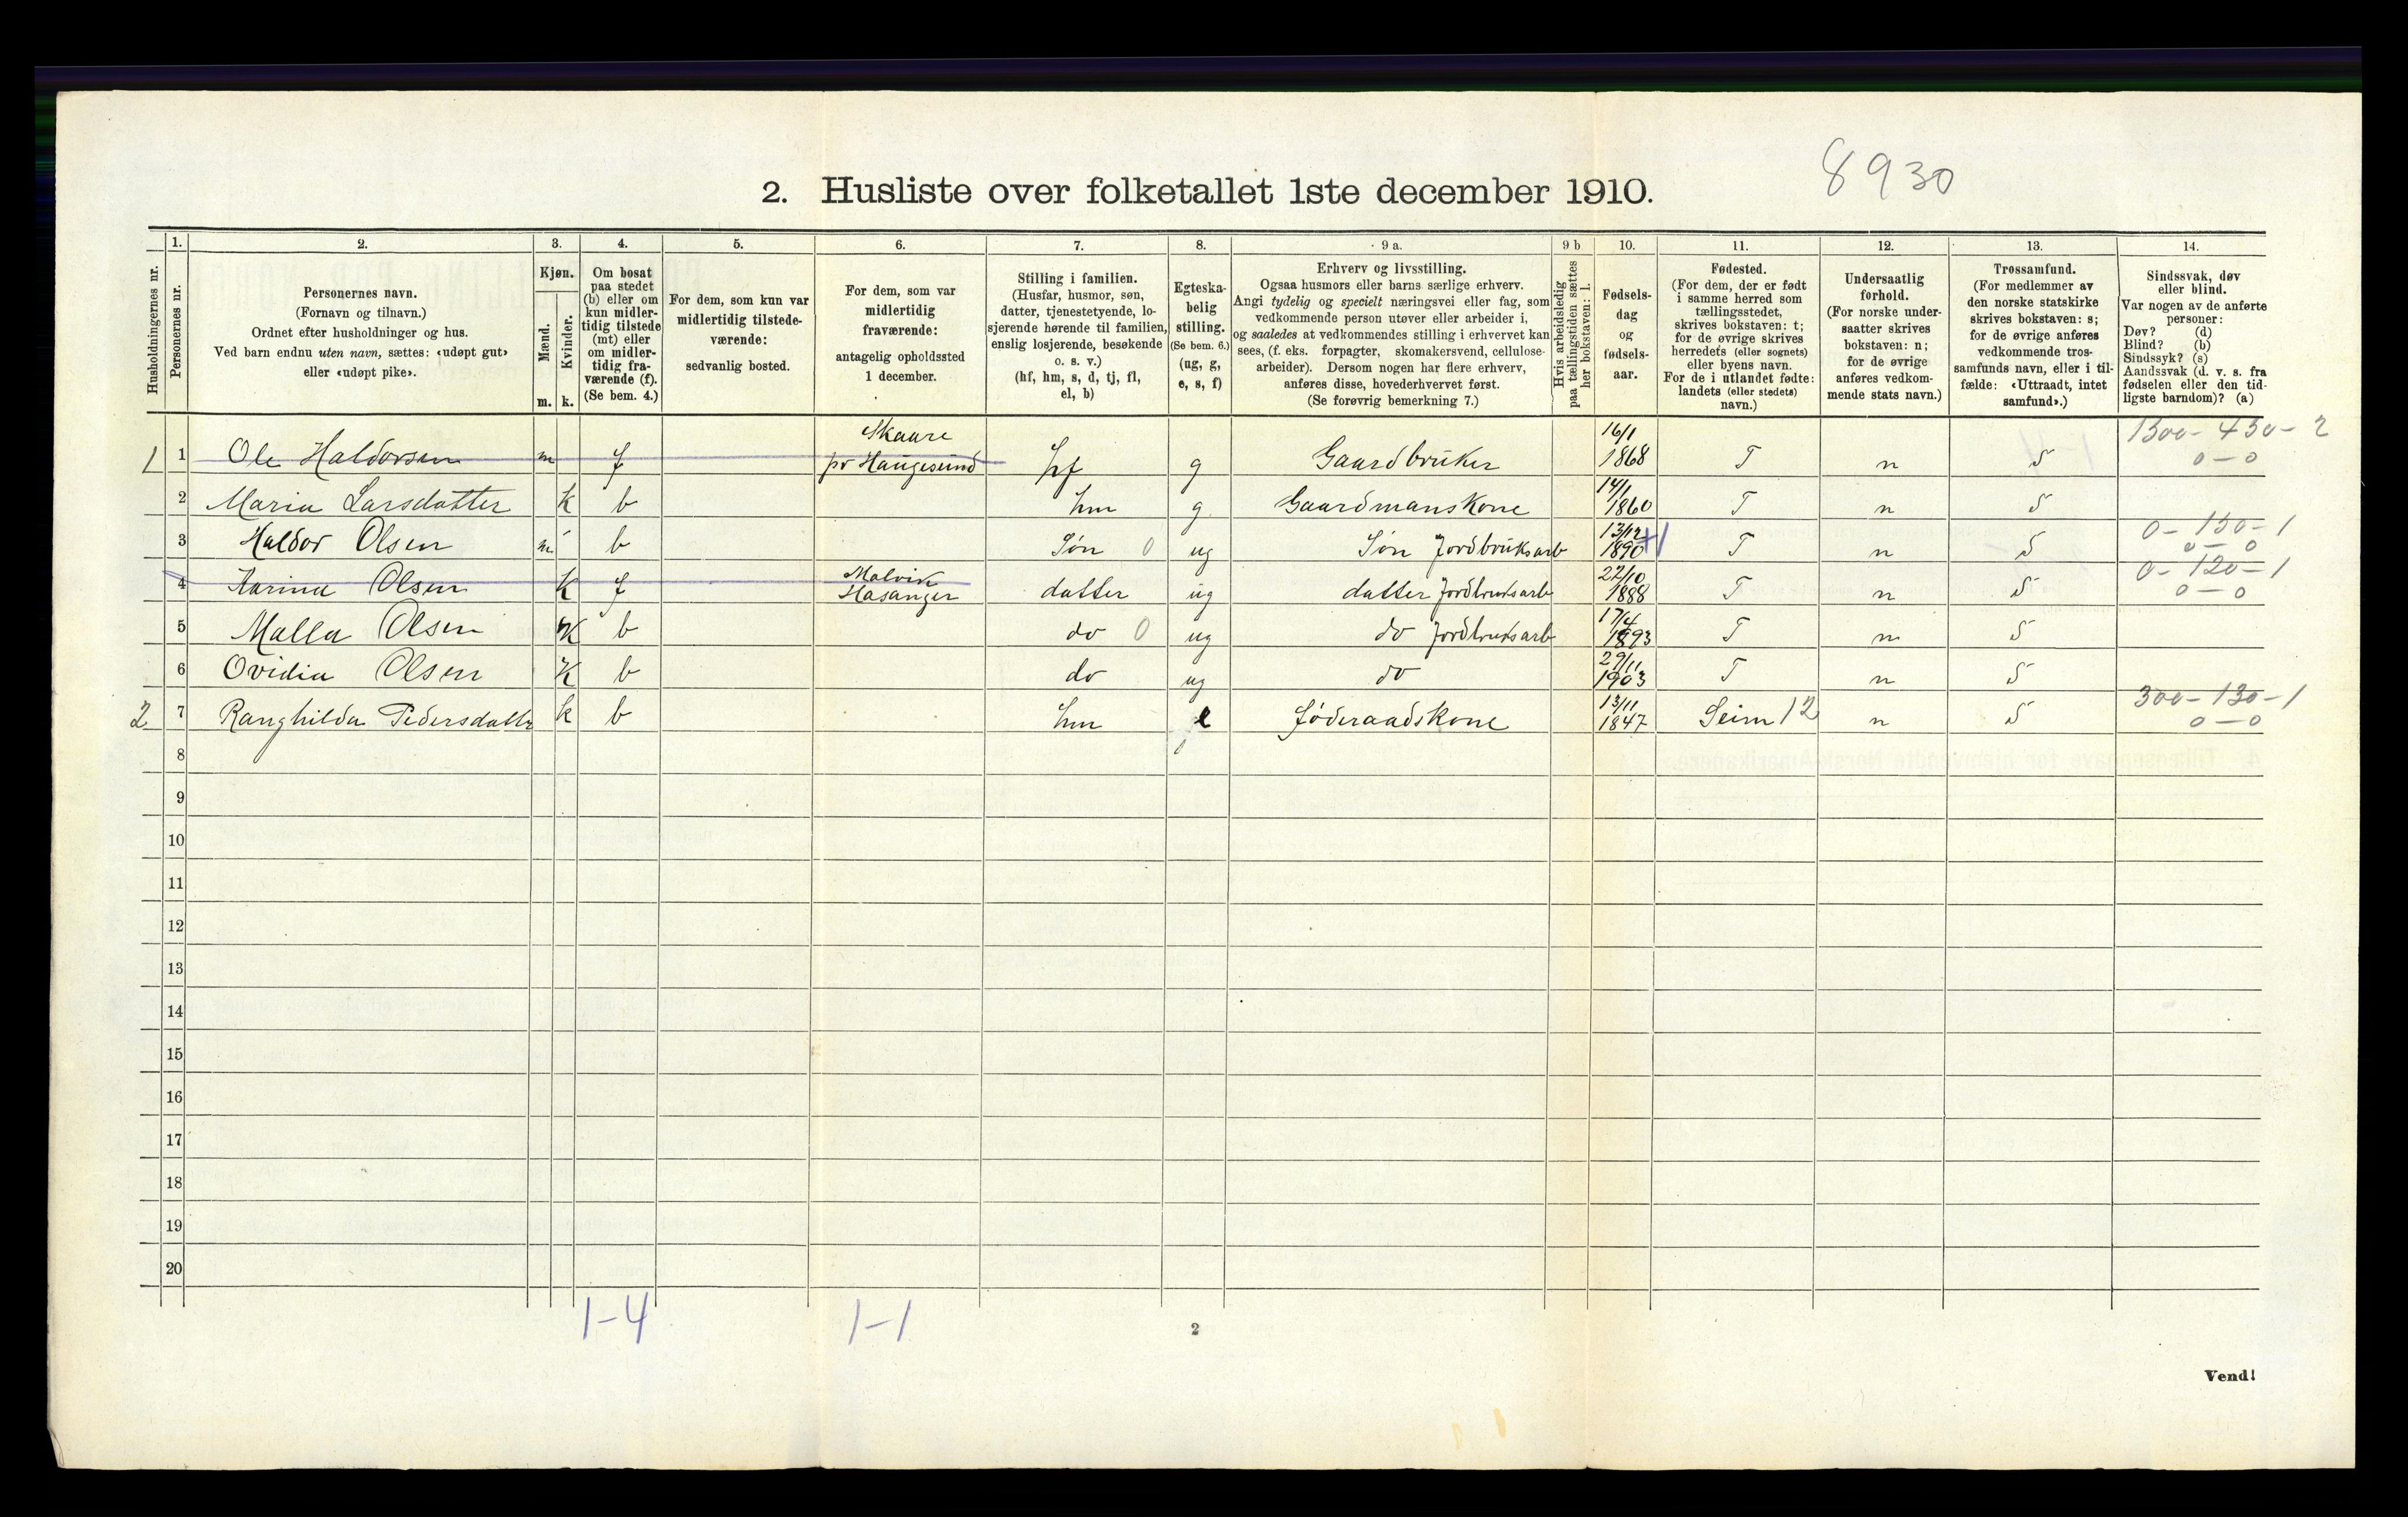 8930
2. Husliste over folketallet 1ste december 1910.
Husholdningernes nr.
1.
Personernes nr.
2.
Personernes navn.
(Fornavn og tilnavn.)
Ordnet efter husholdninger og hus.
Ved barn endnu uten navn, sættes: «udøpt gut»
eller «udøpt pike».
3.
Kjøn.
Mænd.
Kvinder.
m. k.
4.
Om bosat
paa stedet
(b) eller om
kun midler-
tidig tilstede
(mt) eller
om midler-
tidig fra-
værende (f).
(Se bem. 4.)
5.
For dem, som kun var
midlertidig tilstede-
værende:
sedvanlig bosted.
6.
For dem, som var
midlertidig
fraværende:
antagelig opholdssted
1 december.
7.
Stilling i familien.
(Husfar, husmor, søn,
datter, tjenestetyende, lo-
sjerende hørende til familien,
enslig losjerende, besøkende
o. s. v.)
(hf, hm, s, d, tj, fl,
el, b)
8.
Egteska-
belig
stilling.
(Se bem. 6.)
(ug, g,
e, s, f)
9 a.
Erhverv og livsstilling.
Ogsaa husmors eller barns særlige erhverv.
Angi tydelig og specielt næringsvei eller fag, som
vedkommende person utøver eller arbeider i,
og saaledes at vedkommendes stilling i erhvervet kan
sees, (f. eks. forpagter, skomakersvend, cellulose-
arbeider). Dersom nogen har flere erhverv,
anføres disse, hovederhvervet først.
(Se forøvrig bemerkning 7.)
9 b
Hvis arbeidsledig
paa tællingstiden sættes
her bokstaven: l.
10.
Fødsels-
dag
og
fødsels-
aar.
11.
Fødested.
(For dem, der er født
i samme herred som
tællingsstedet,
skrives bokstaven: t;
for de øvrige skrives
herredets (eller sognets)
eller byens navn.
For de i utlandet fødte:
landets (eller stedets)
navn.)
12.
Undersaatlig
forhold.
(For norske under-
saatter skrives
bokstaven: n;
for de øvrige
anføres vedkom-
mende stats navn.)
13.
Trossamfund.
(For medlemmer av
den norske statskirke
skrives bokstaven: s;
for de øvrige anføres
vedkommende tros-
samfunds navn, eller i til-
fælde: «Uttraadt, intet
samfund».)
14.
Sindssvak, døv
eller blind.
Var nogen av de anførte
personer:
Døv? (d)
Blind? (b)
Sindssyk? (s)
Aandssvak (d. v. s. fra
fødselen eller den tid-
ligste barndom)? (a)
Skaare 16/1 1300-430-2
1 1 Ole Haldorsen m f pr Haugesund hf g Gaardbruker 1868 T n S 0-0
14/1
2 Maria Larsdatter k b hm g Gaardmanskone 1860 T n S
13/12 0-150-1
3 Haldor Olsen m b Søn 0 ug Søn Jordbruksarb 1890 +1 T n S 0-0
Malvik 22/10 0-120-1
4 Karina Olsen K f Hasanger datter ug datter Jordbruksarb 1888 T n S 0-0
17/4
5 Malla Olsen K b do 0 ug do Jordbruksarb 1893 T n S
29/11
6 Ovidia Olsen K b do ug do 1903 T n S
13/11 300-130-1
2 7 Ranghilda Pedersdatter k b hm e Føderaadskone 1847 Seim 12 n S 0-0
8
9
10
11
12
13
14
15
16
17
18
19
20
1-4 1-1
2
Vend!